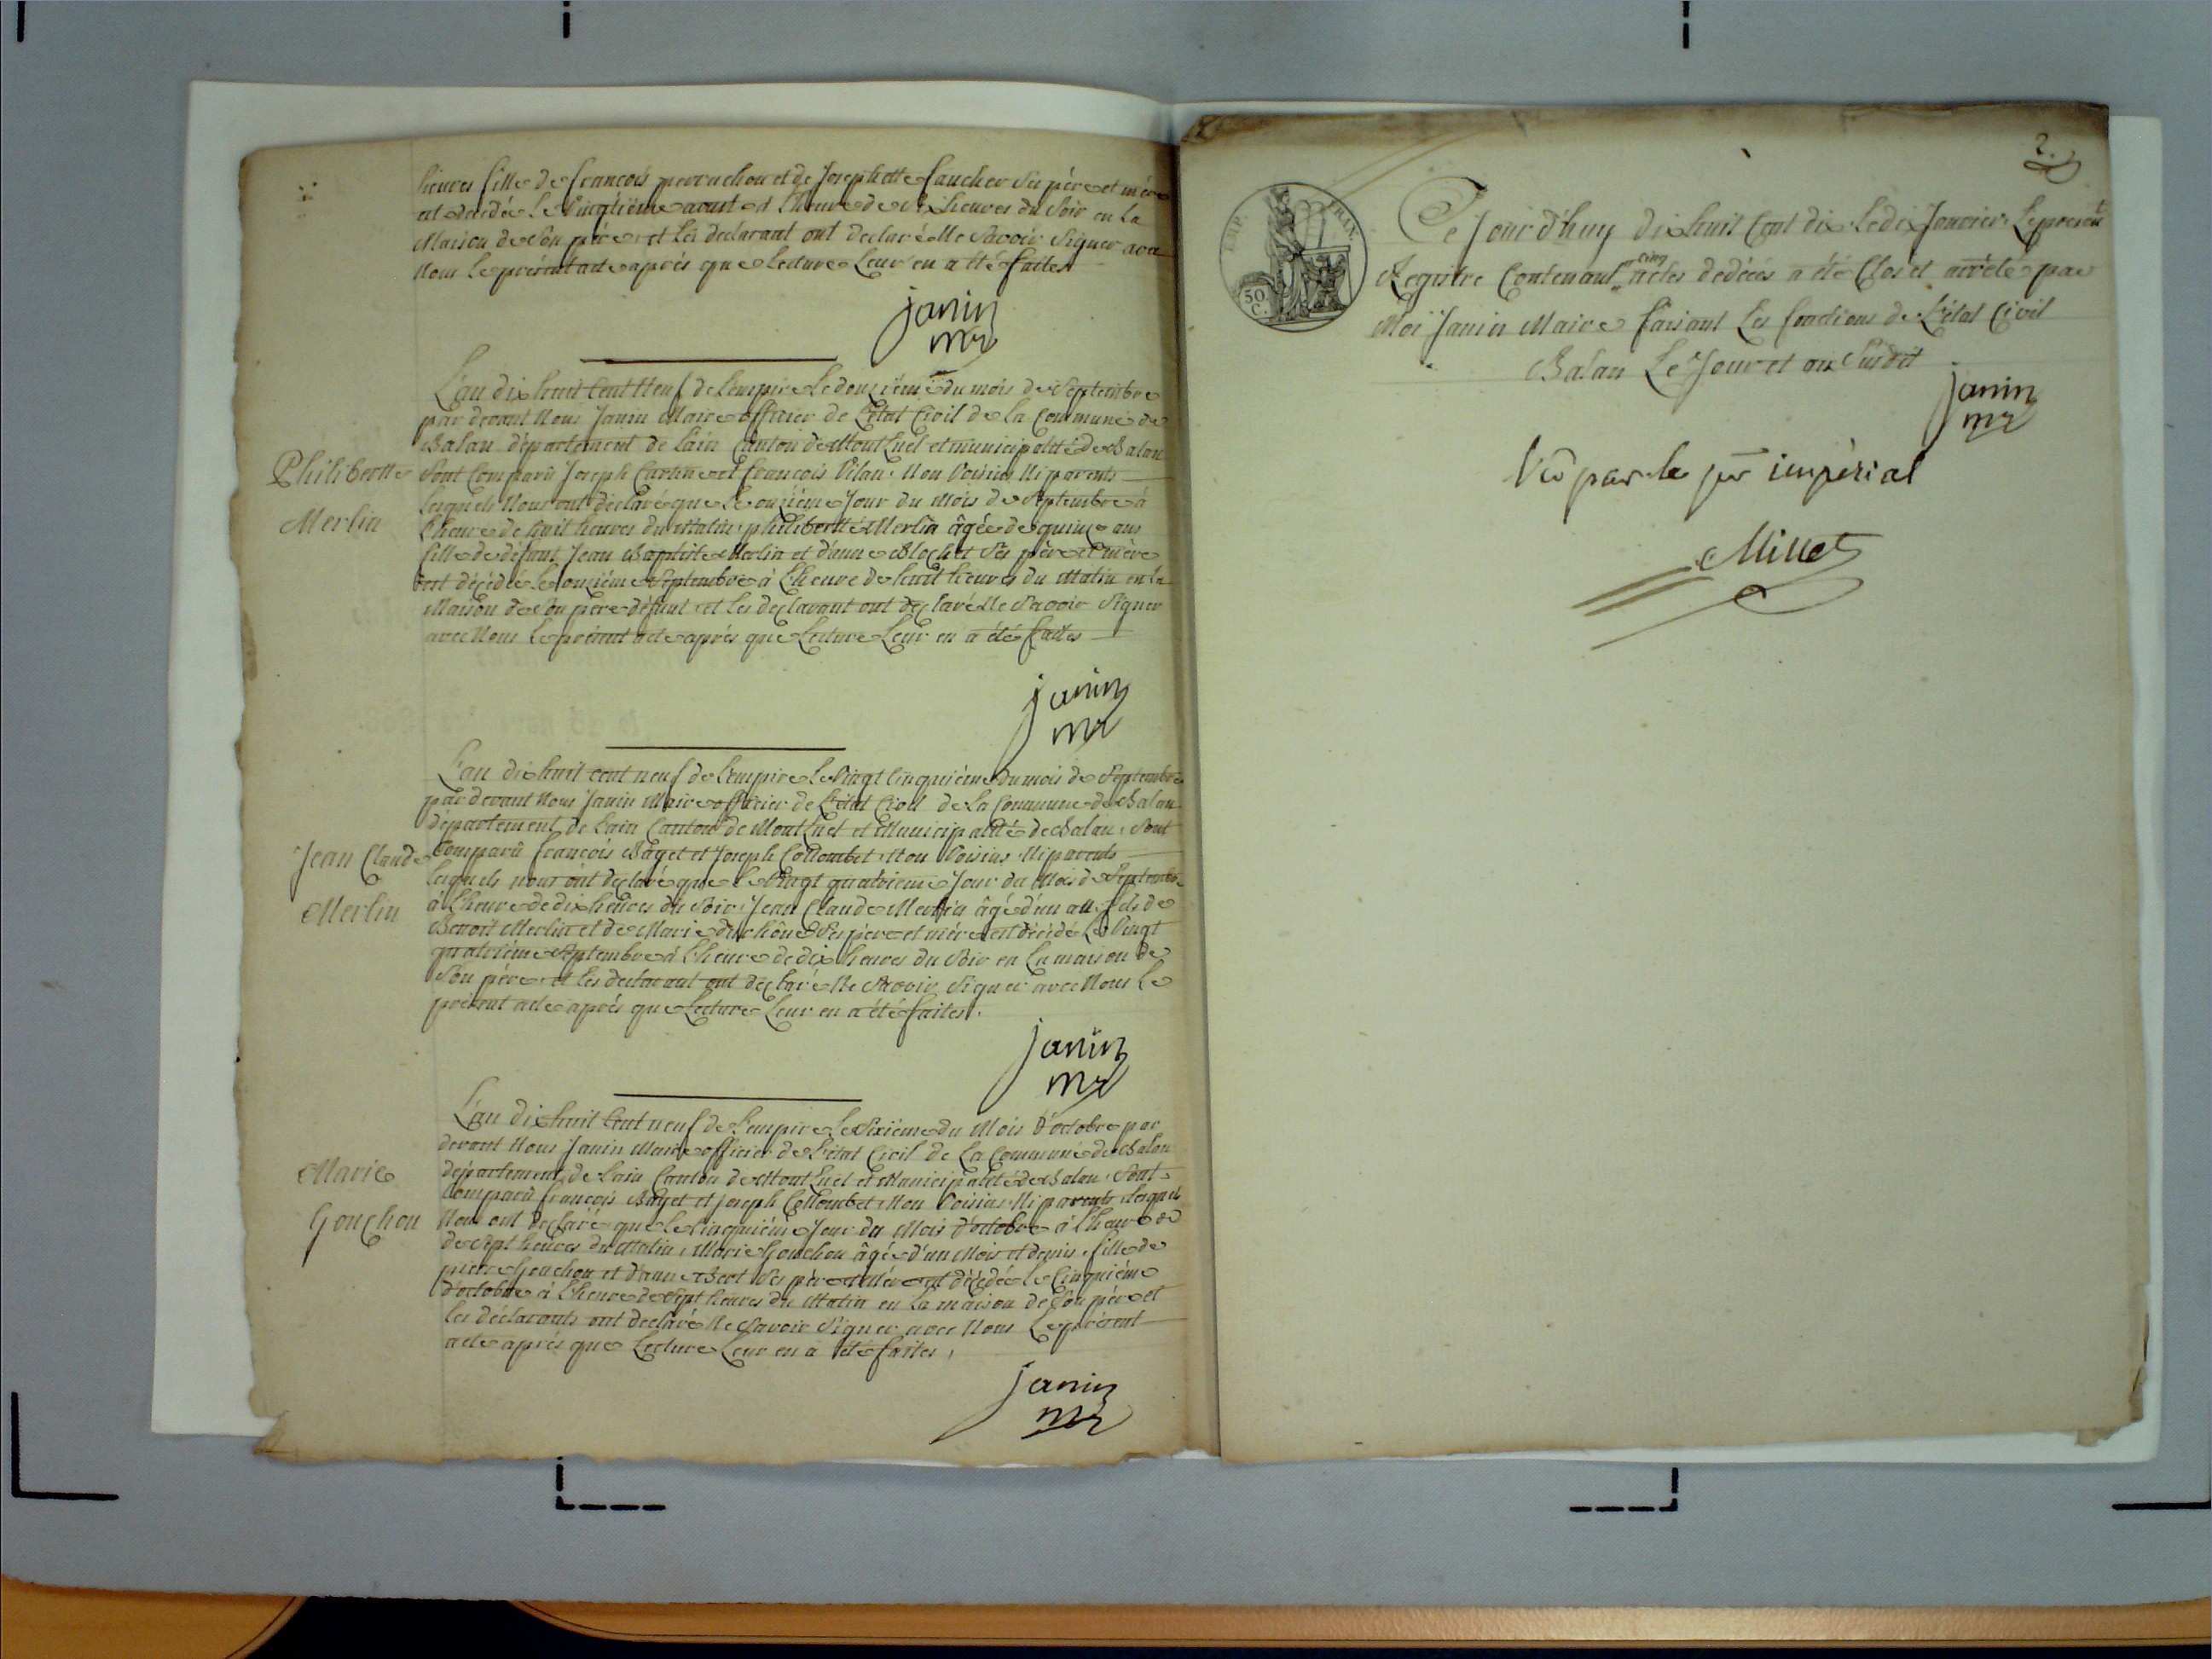 heures fille de francois perruchon et de Josephette faucher Ses père et mère
est décédée Le Vingtième aoust à l'heure de Six heures du Soir en La
Maison de Son père et Les declarant ont declaré Ne Savoir Signer avec
Nous Le présent acte après que Lecture Leur en a été faites
janin
mr
L'an dix huit Cent Neuf de L'empire Le douzième du mois de Septembre
par devant Nous Janin Maire officier de L'état Civil de la Commune de
Balan département de Lain Canton de MontLuel et municipalité de Balan
Philiberte
Merlin
Sont Comparû Joseph et francois Vilan Non Voisins Ni parents
Lesquels Nous ont déclaré que Le onzième Jour du Mois de Septembre à
L'heure de huit heures du Matin philiberte Merlin âgée de quinze ans
fille de défunt Jean Baptiste Merlin et d'anne Blochet Ses père et mère
est décédée Le onzième Septembre à L'heure de huit heures du Matin en la
Maison de Son père défunt et les declarant ont declaré Ne Savoir Signer
avec Nous Le présent acte après que Lecture Leur en a été faites
janin
mr
L'an dix huit cent neuf de L'empire Le Vingt Cinquième du mois de Septembre
par devant Nous Janin Maire officier de L'état Civil de La Commune de Balan
département de Lain Canton de MontLuel et Municipalité de Balan, Sont
Jean Claude
Merlin
Comparû francois Bayet et Joseph Collombet Non Voisins Ni parents
Lesquels nous ont declaré que Le Vingt quatrième Jour du Mois de Septembre
à L'heure de dix heures du Soir, Jean Claude Merlin âgé d'un an fils de
Benoit Merlin et de Marie duchêne Ses père et mère est décédé Le Vingt
quatrième Septembre à L'heure de dix heures du Soir en La maison de
Son père et Les declarant ont declaré Ne Savoir Signer avec Nous Le
présent acte après que Lecture Leur en a été faites.
janin
mr
L'an dix huit Cent neuf de L'empire Le Sixième du Mois d'octobre par
devant Nous Janin Maire officier de L'état Civil de La Commune de Balan
département de Lain Canton de MontLuel et Municipalité de Balan, Sont
Marie
Gouchon
Comparû francois Bayet et Joseph Collombet Non Voisins Ni parents Lesquels
Nous ont declaré que Le Cinquième Jour du Mois d'octobre à L'heure de
de Sept heures du Matin, Marie Gouchon âgée d'un Mois et demis, fille de
pierre Gouchon et d'anne Bert Ses père et mère est décédée Le Cinquième
d'octobre à L'heure de Sept heures du Matin en La maison de Son père et
Les déclarants ont declaré Ne Savoir Signer avec Nous Le présent
acte après que Lecture Leur en a été faites,
janin
mr
2.
EMP. FRAN.
50
C.
Ce Jourd'huy dix huit Cent dix Le dix Janvier, Le présent
Registre Contenant cinq actes de décés a été Clos et arrêté par
Moi Janin Maire faisant Les fonctions de L'état Civil
Balan Le Jour et an Susdit
janin
mr
Vû par le pr impérial
Millet